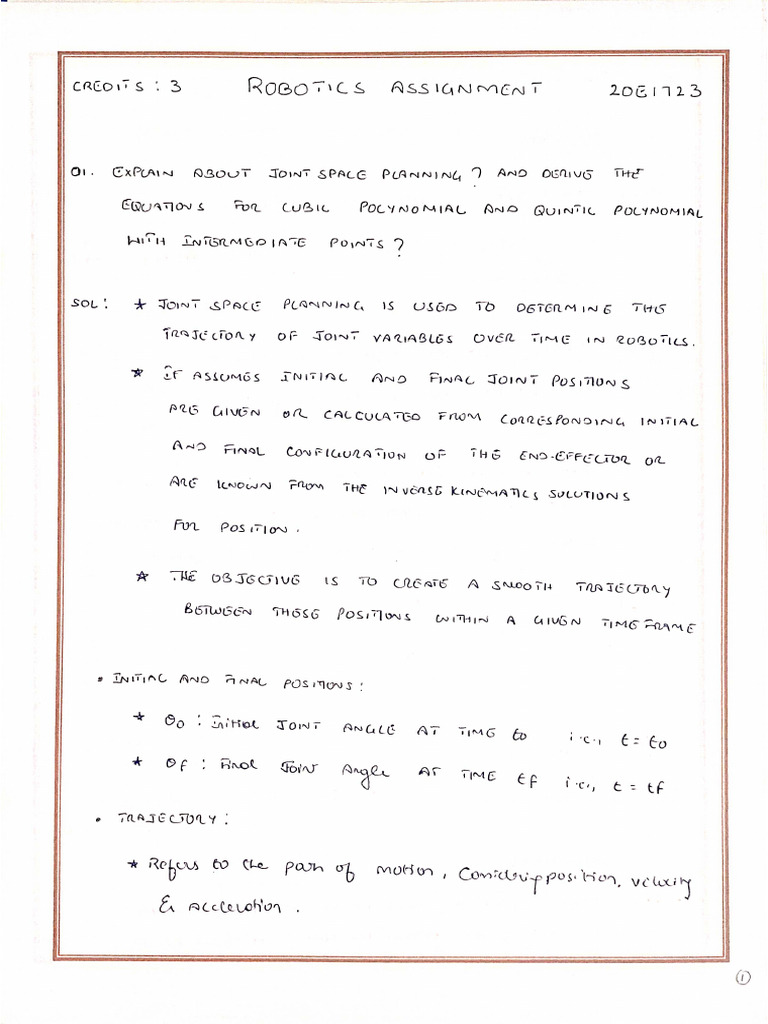 CREDITS : 3 ROBOTICS ASSIGNMENT 20E1723
01. EXPLAIN ABOUT JOINT SPACE PLANNING? AND DERIVE THE
EQUATIONS FOR CUBIC POLYNOMIAL AND QUINTIC POLYNOMIAL
WITH INTERMEDIATE POINTS?
SOL: * JOINT SPACE PLANNING IS USED TO DETERMINE THE
TRAJECTORY OF JOINT VARIABLES OVER TIME IN ROBOTICS.
* IF ASSUMES INITIAL AND FINAL JOINT POSITIONS
ARE GIVEN OR CALCULATED FROM CORRESPONDING INITIAL
AND FINAL CONFIGURATION OF THE END-EFFECTOR OR
ARE KNOWN FROM THE INVERSE KINEMATICS SOLUTIONS
FOR POSITION.
* THE OBJECTIVE IS TO CREATE A SMOOTH TRAJECTORY
BETWEEN THESE POSITIONS WITHIN A GIVEN TIME FRAME
• INITIAL AND FINAL POSITIONS:
* θ0 : Initial JOINT ANGLE AT TIME to i.e., t = to
* θf : Final JOINT Angle AT TIME tf i.e., t = tf
• TRAJECTORY:
* Refers to the path of motion, Considering position, velocity
& acceleration.
1